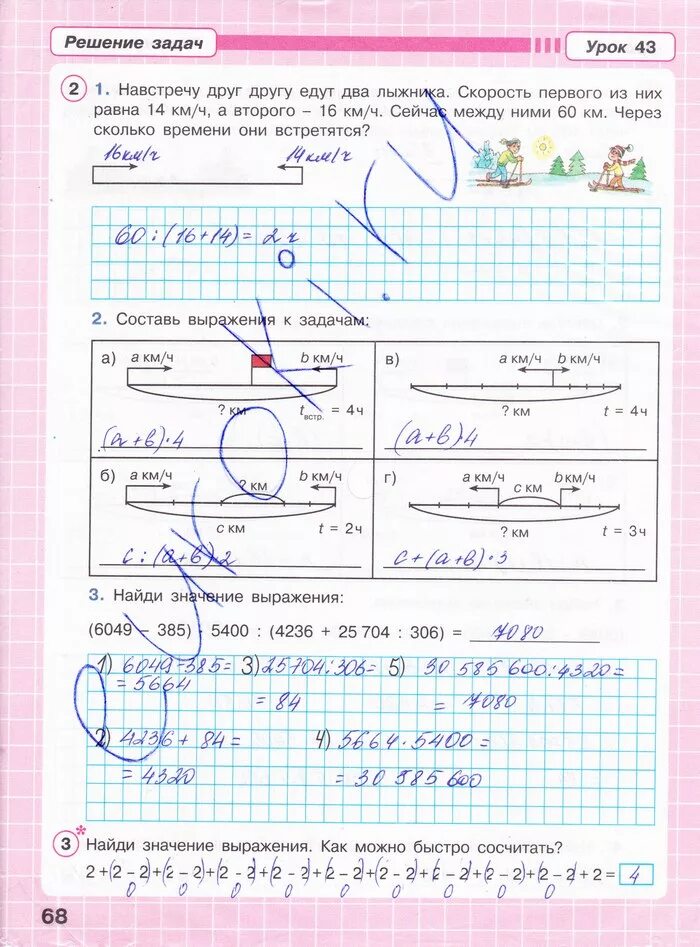 Решение задач
Урок 43
2 1. Навстречу друг другу едут два лыжника. Скорость первого из них
равна 14 км/ч, а второго – 16 км/ч. Сейчас между ними 60 км. Через
сколько времени они встретятся?
16км/ч 14км/ч
60 : (16+14) = 2 ч
2. Составь выражения к задачам:
а) a км/ч b км/ч
? км tвстр. = 4ч
(a+b)·4
в) a км/ч b км/ч
? км t = 4ч
(a+b)·4
б) a км/ч ? км b км/ч
c км t = 2ч
c : (a+b)·2
г) a км/ч c км b км/ч
? км t = 3ч
c+(a+b)·3
3. Найди значение выражения:
(6049 – 385) · 5400 : (4236 + 25 704 : 306) = 7080
1) 6049-385= 3) 25704:306= 5) 30 585 600:4320=
= 5664 = 84 = 7080
2) 4236+ 84 = 4) 5664·5400 =
= 4320 = 30 585 600
3* Найди значение выражения. Как можно быстро сосчитать?
2+(2 – 2)+(2 – 2)+(2 – 2)+(2 – 2)+(2 – 2)+(2 – 2)+(2 – 2)+(2 – 2)+(2 – 2)+ 2 = 4
0 0 0 0 0 0 0 0 0
68